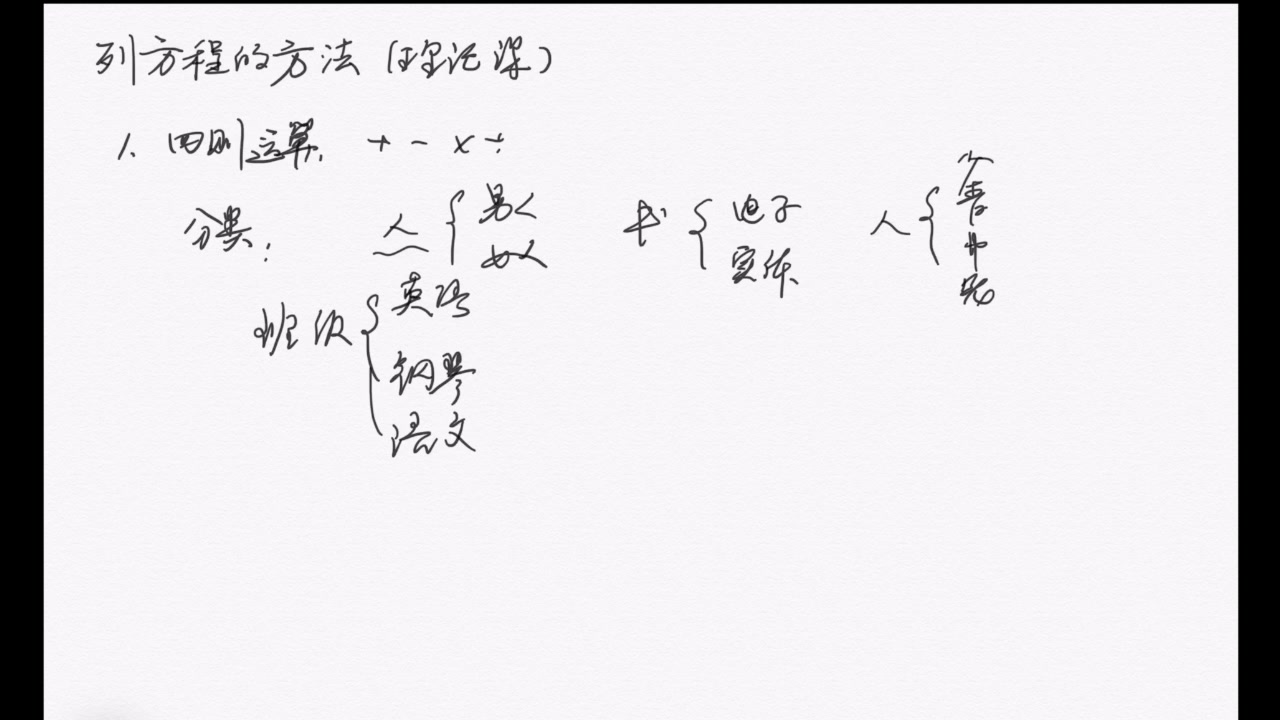 列方程的方法（理论课）
1、四则运算 + - × ÷
分类：
人 { 男人
女人
书 { 电子
实体
人 { 少
青
中
老
班级 { 英语
钢琴
语文